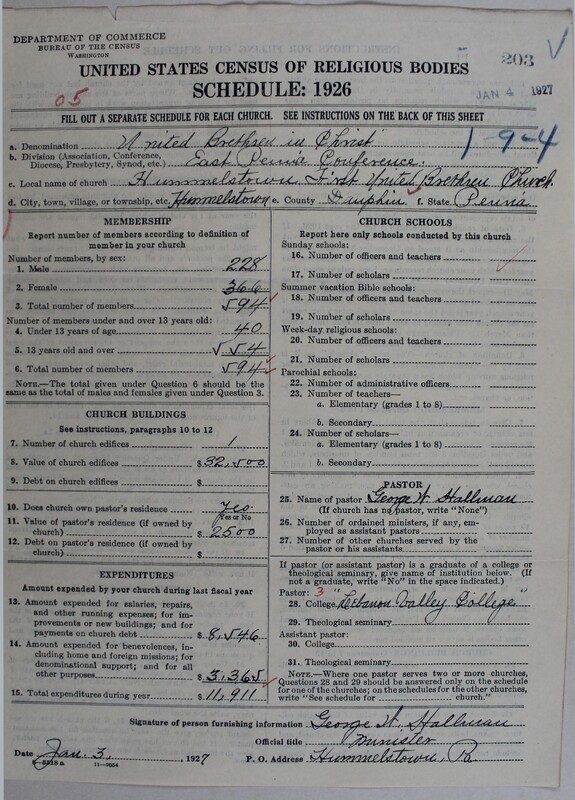 DEPARTMENT OF COMMERCE
BUREAU OF THE CENSUS
WASHINGTON
203
JAN 4 1927
UNITED STATES CENSUS OF RELIGIOUS BODIES
SCHEDULE: 1926
05
FILL OUT A SEPARATE SCHEDULE FOR EACH CHURCH. SEE INSTRUCTIONS ON THE BACK OF THIS SHEET
1-9-4
a. Denomination United Brethren in Christ
b. Division (Association, Conference, Diocese, Presbytery, Synod, etc.) East Penn'a Conference.
c. Local name of church Hummelstown First United Brethren Church.
d. City, town, village, or township, etc. Hummelstown e. County Dauphin f. State Penna
MEMBERSHIP
Report number of members according to definition of
member in your church
Number of members, by sex:
1. Male 228
2. Female 366
3. Total number of members 594
Number of members under and over 13 years old:
4. Under 13 years of age 40
5. 13 years old and over 554
6. Total number of members 594
NOTE.—The total given under Question 6 should be
same as the total of males and females given under Question 3.
CHURCH BUILDINGS
See instructions, paragraphs 10 to 12
7. Number of church edifices 1
8. Value of church edifices $32,500
9. Debt on church edifices $
10. Does church own pastor's residence yes
Yes or No
11. Value of pastor's residence (if owned by
church) $2500
12. Debt on pastor's residence (if owned by
church) $
EXPENDITURES
Amount expended by your church during last fiscal year
13. Amount expended for salaries, repairs,
and other running expenses; for im-
provements or new buildings; and for
payments on church debt $8,546
14. Amount expended for benevolences, in-
cluding home and foreign missions; for
denominational support; and for all
other purposes $3,365
15. Total expenditures during year $11,911
CHURCH SCHOOLS
Report here only schools conducted by this church
Sunday schools:
16. Number of officers and teachers
17. Number of scholars
Summer vacation Bible schools:
18. Number of officers and teachers
19. Number of scholars
Week-day religious schools:
20. Number of officers and teachers
21. Number of scholars
Parochial schools:
22. Number of administrative officers
23. Number of teachers—
a. Elementary (grades 1 to 8)
b. Secondary
24. Number of scholars—
a. Elementary (grades 1 to 8)
b. Secondary
PASTOR
25. Name of pastor George W. Hallman
(If church has no pastor, write "None")
26. Number of ordained ministers, if any, em-
ployed as assistant pastors
27. Number of other churches served by the
pastor or his assistants
If pastor (or assistant pastor) is a graduate of a college or
theological seminary, give name of institution below. (If
not a graduate, write "No" in the space indicated.)
Pastor: 3
28. College "Lebanon Valley College"
29. Theological seminary
Assistant pastor:
30. College
31. Theological seminary
NOTE.—Where one pastor serves two or more churches,
Questions 28 and 29 should be answered only on the schedule
for one of the churches; on the schedules for the other churches,
write "See schedule for church."
Signature of person furnishing information George W. Hallman
Official title Minister
Date Jan. 3, 1927 P. O. Address Hummelstown, Pa
11—9024